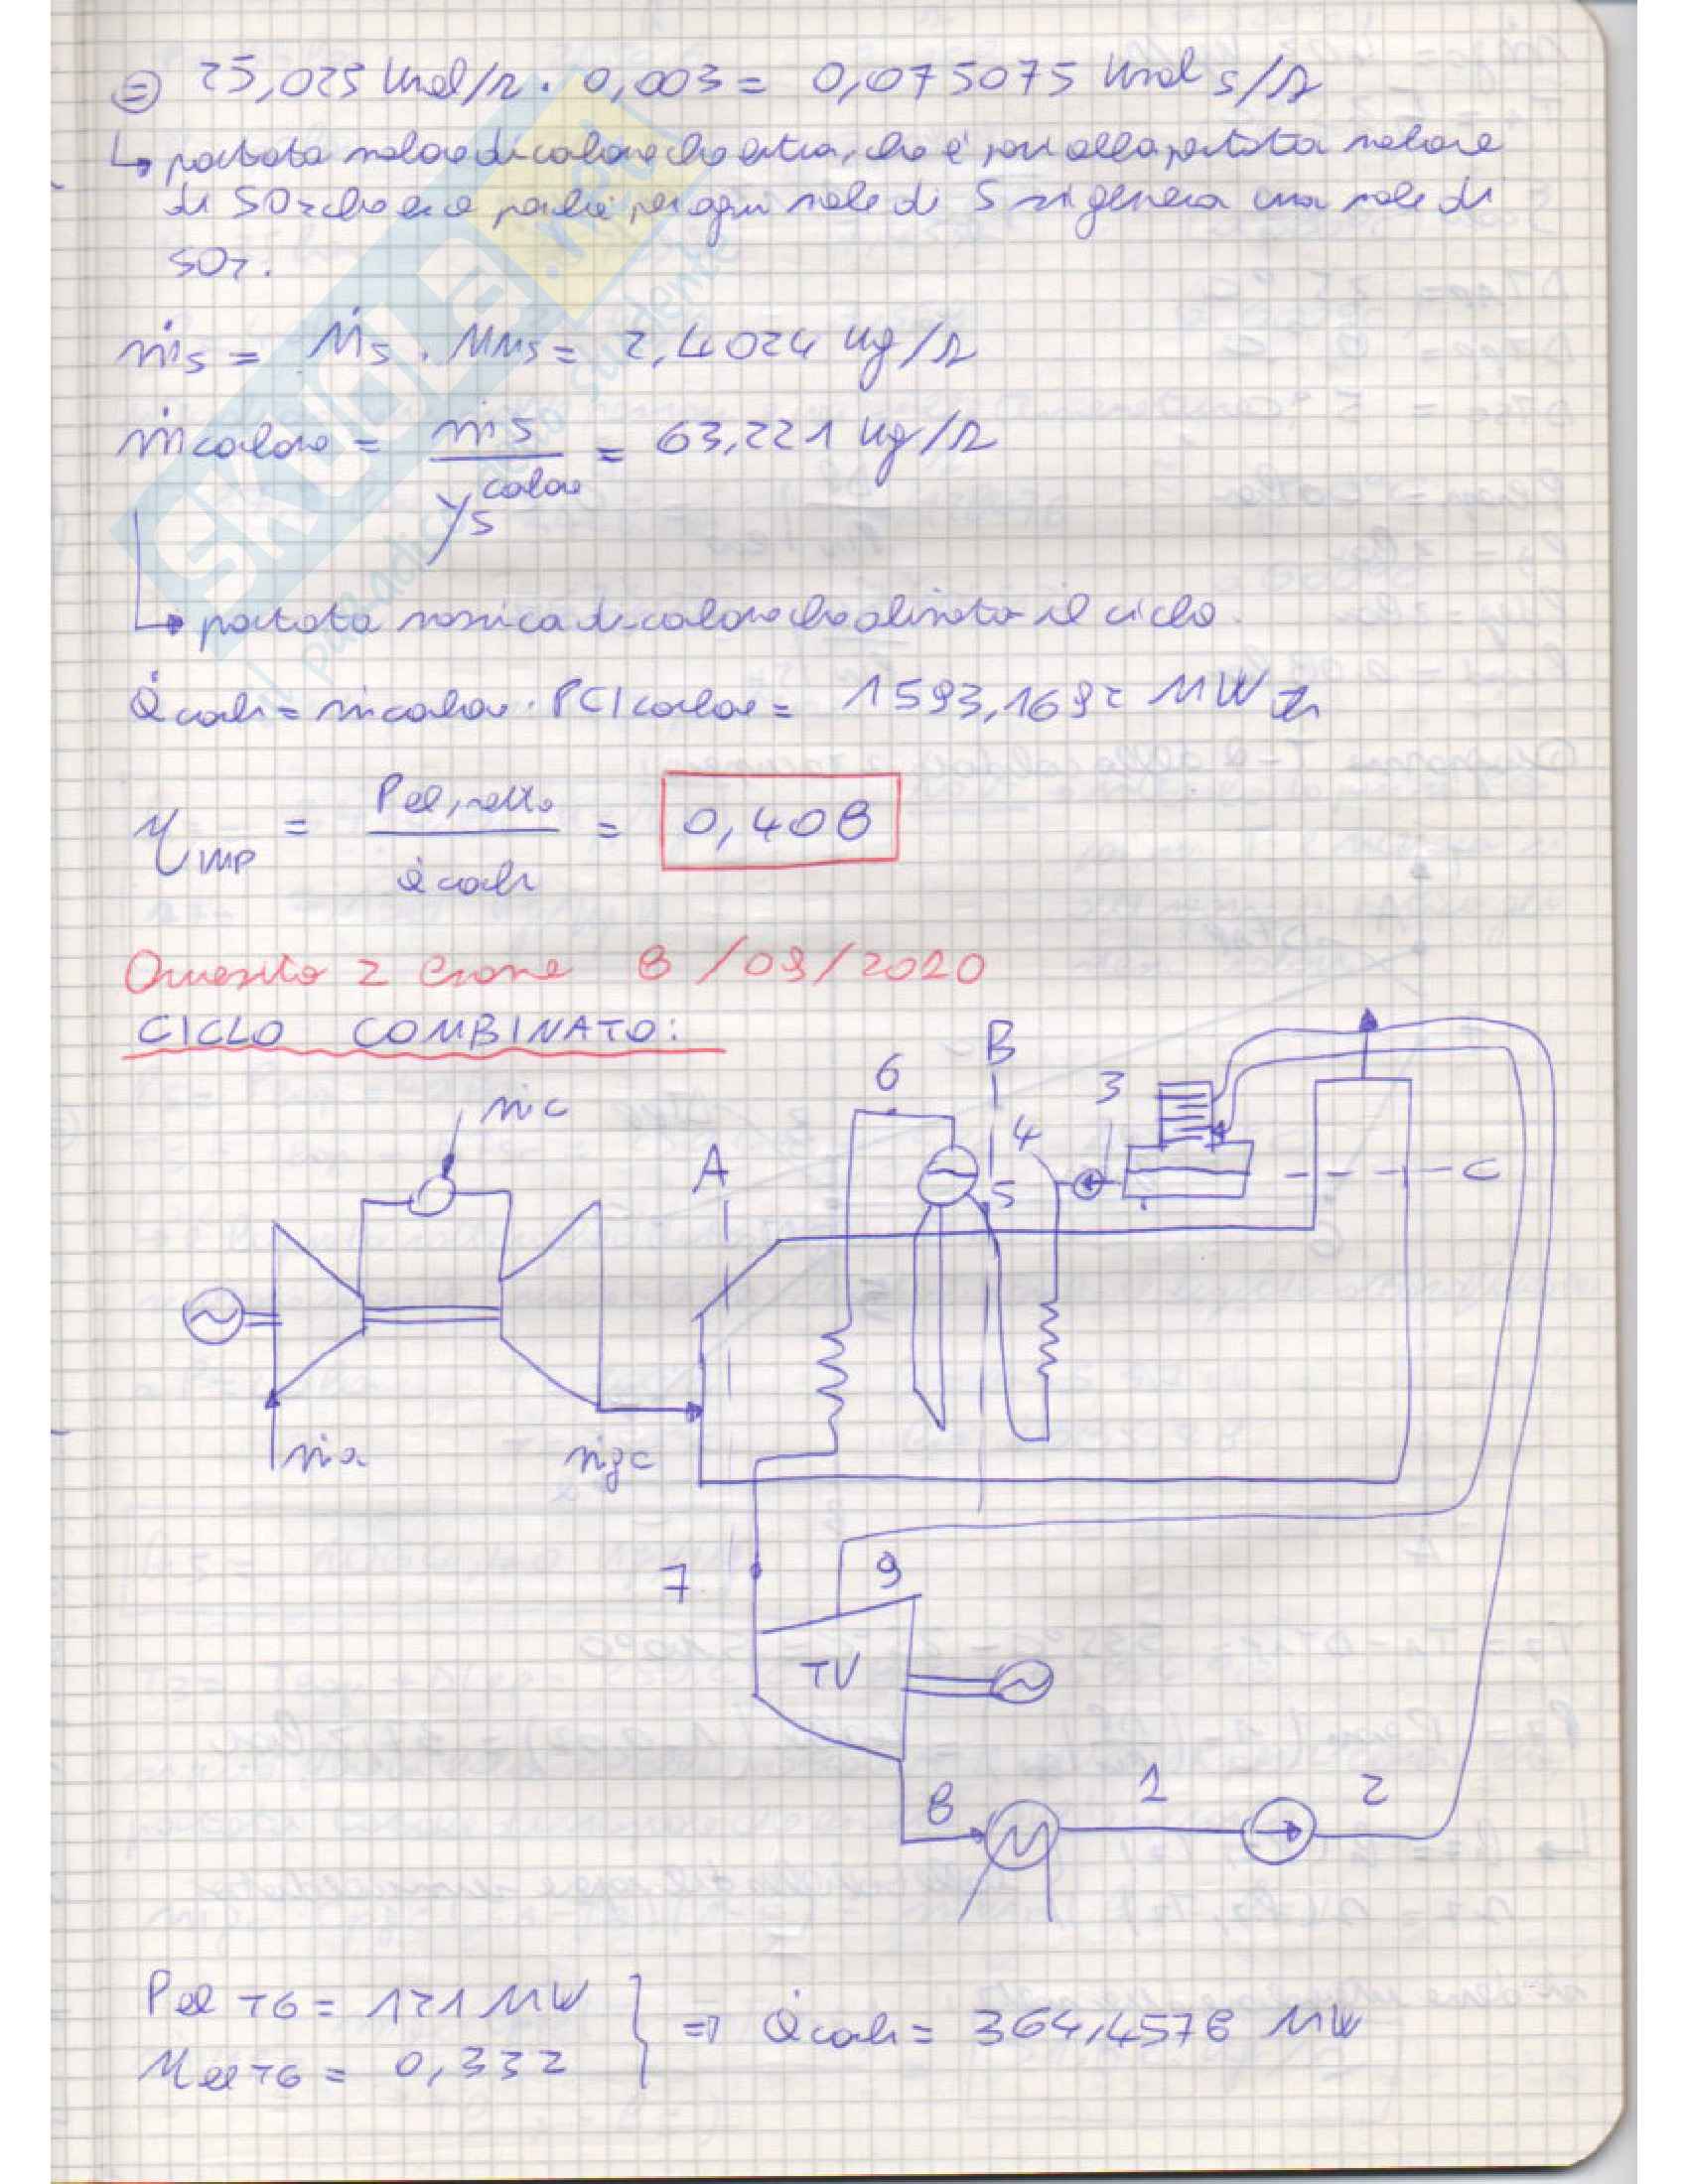 = 25,025 kmol/s · 0,003 = 0,075075 kmol S/s
↳ portata molare di carbone che entra, che è pari alla portata molare
di SO2 che esce perché per ogni mole di S si genera una mole di
SO2.
ṁS = ṀS · MMS = 2,4024 kg/s
ṁcarbone = ṁS / yS carbone = 63,221 kg/s
↳ portata massica di carbone che alimenta il ciclo
Q̇comb = ṁcarbone · PCI carbone = 1593,1692 MW th
ηIMP = Pel,netto / Q̇comb = 0,408
Quesito 2 Esame 8/09/2020
CICLO COMBINATO:
ṁc
A
6
B
4
3
5
C
ṁa
ṁgc
7
9
TV
8
1
2
Pel TG = 121 MW
ηel TG = 0,332
⇒ Q̇comb = 364,4578 MW
SKUOLA.net
il paradiso dello studente